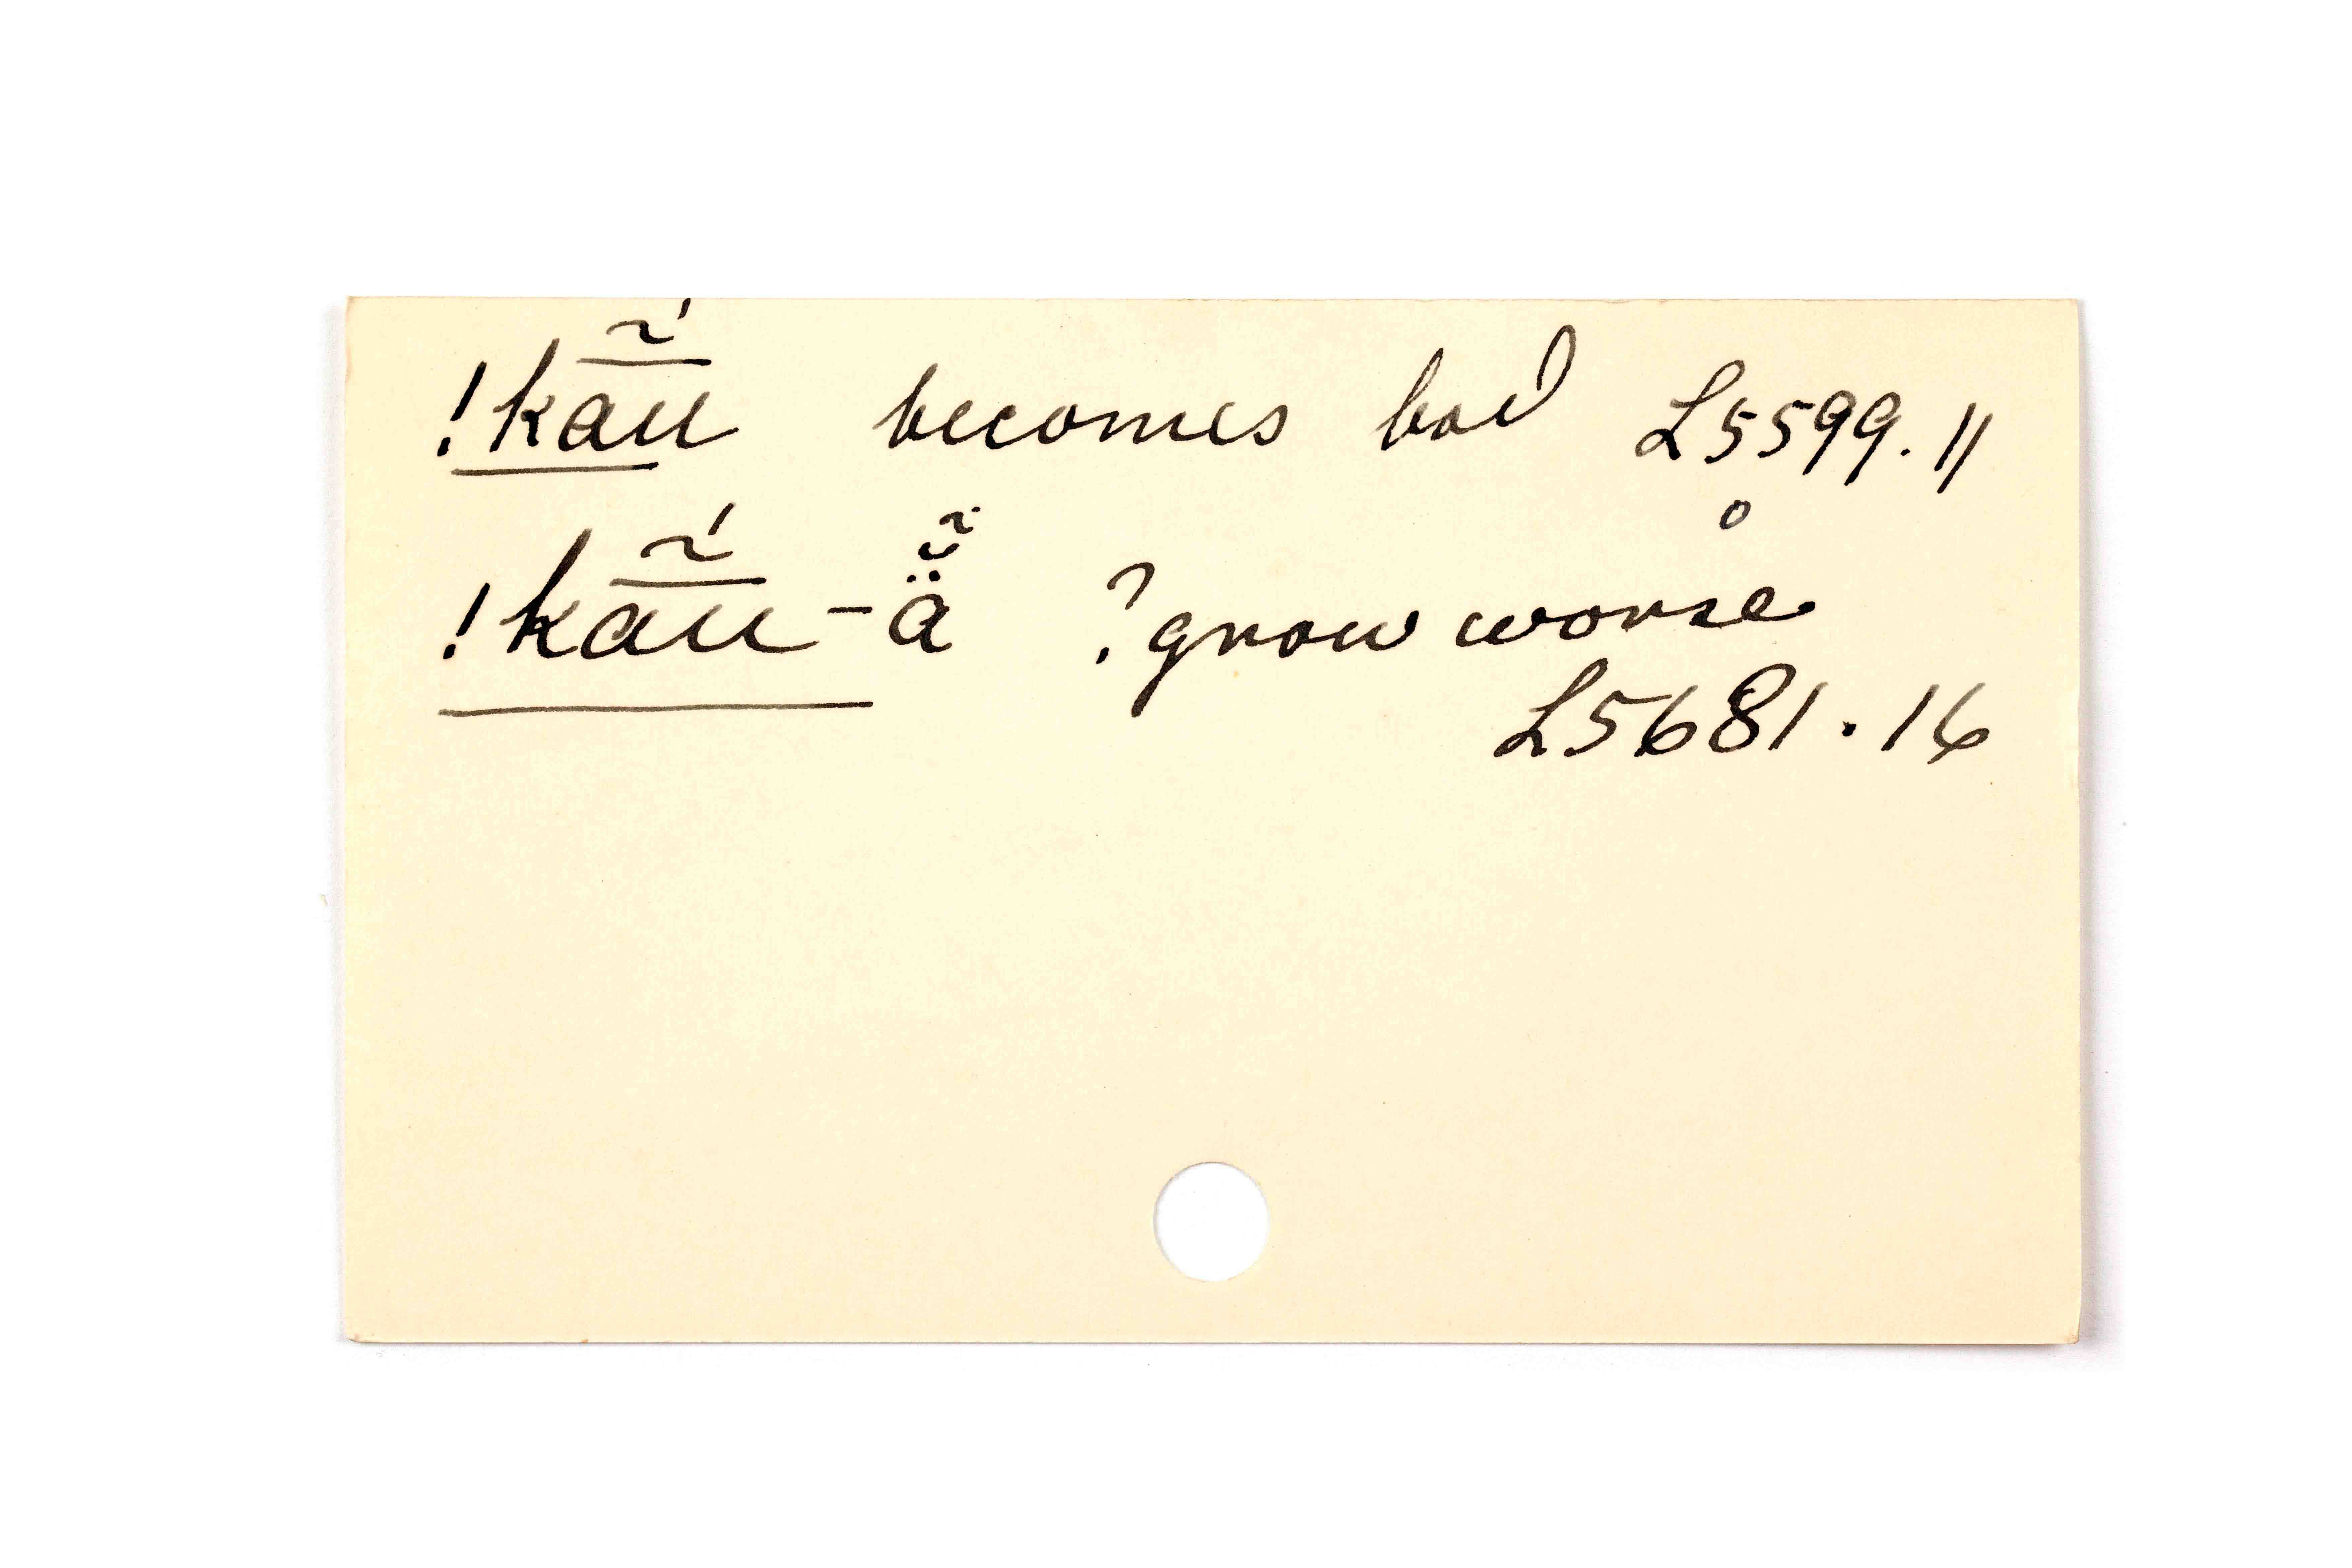 !kā̰̃́u becomes bad L5599.11
o
!kā̃́u-ä̆̃ ?grow worse
L5681.16